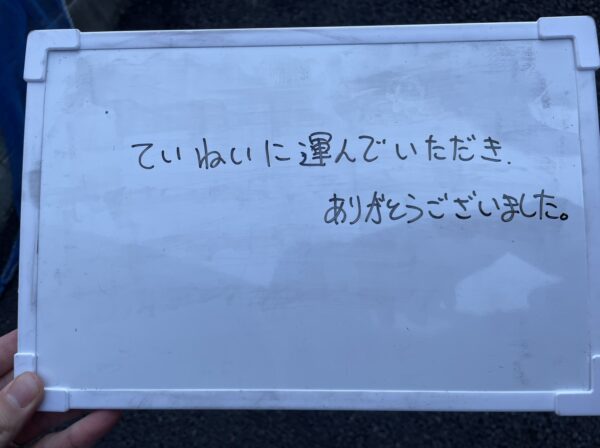 ていねいに運んでいただき.
ありがとうございました。